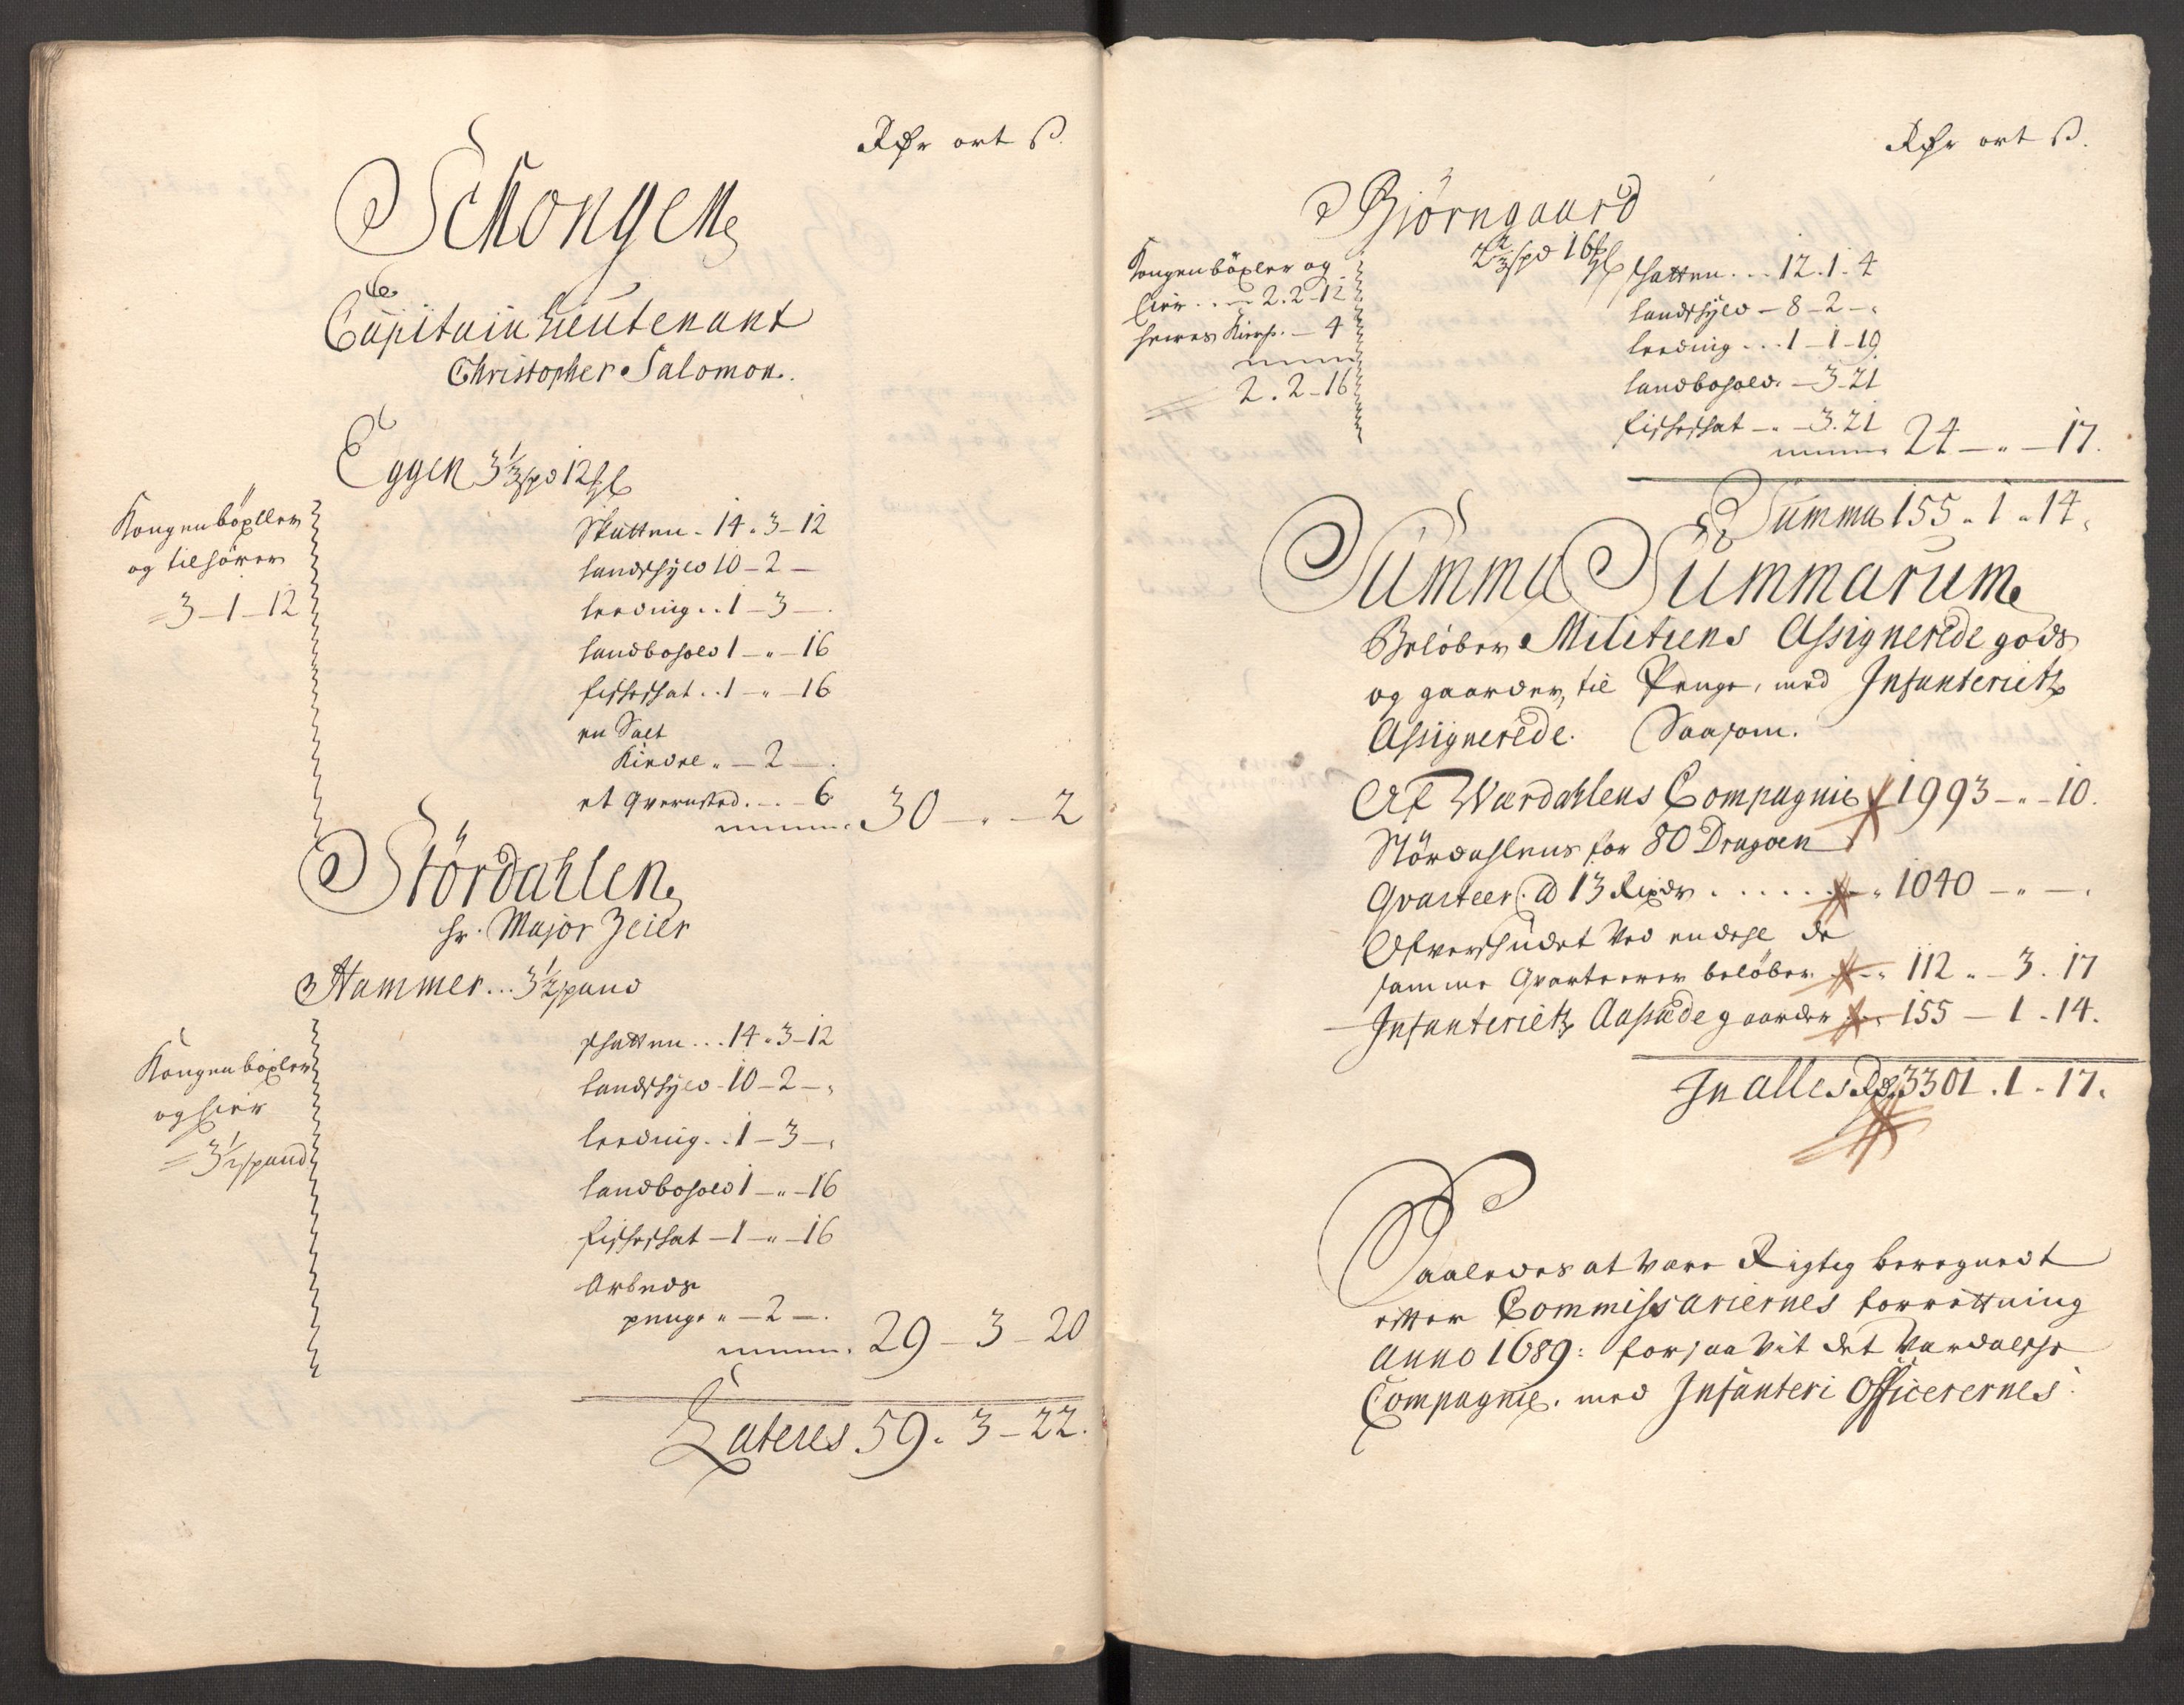 Rdr ort ß.
Schongen
Capitain Lieutenant
Christopher Salomon.
Eggen 3 1/3 spd 12 ℔
Kongen böxller
og tilhörer
= 3 - 1 - 12
Skatten - 14 - 3 - 12
landschyld 10 - 2 -
leeding .. 1 - 3 -
landbohold 1 - " - 16
fischeschat .. 1 - " - 16
en Salt
Kiedel " - 2 - .
et Qvernsted . - . - 6
30 - " - 2
Stördahlen
hr. Major Zeier
Hammer ... 3 1/2 spand
Kongen böxler
og eier
= 3 1/2 spand
schatten ... 14 - 3 - 12
landschyld - 10 - 2 - "
leeding .. 1 - 3 - "
landbohold 1 - " - 16
fischeschat - 1 - " - 16
Arbeds
penge " - 2 - .
29 - 3 - 20
Lateres 59 - 3 - 22.
Rdr ort ß.
Björngaard
2 2/3 spd 16 ℔
Kongen böxler og
Eier .. - 2 . 2 - 12
Kirche . - 4
2 . 2 - 16
schatten ... 12 . 1 - 4
landschyld - 8 - 2 - "
leeding ... 1 - 1 - 19
landbohold - 3 - 21
fischeschat - " - 3 . 21
24 - " - 17.
Summa 155 " 1 " 14 "
Summa Summarum
Belöber Militiens Assignerede gods
og gaarder, til Penge, med Infanteriets
Assignerede. Saasom.
Af Wardahlens Compagnie 1993 - " - 10.
Stördahlens for 80 Dragoen
Qvarteer. a 13 Rixdr ..... 1040 - " - .
Ofverskudet Ved endehl de
samme Qvarteerer belöber . 112 " - 3 . 17
Infanteriets gaarder . 155 - 1 - 14.
In alles Rdr. 3301 . 1 - 17.
Saaledes at være Rigtig beregnedt
efter Commissariernes forrettning
Anno 1689: forsaavit det Vardalsche
Compagnie. med Infanteri Officerernes